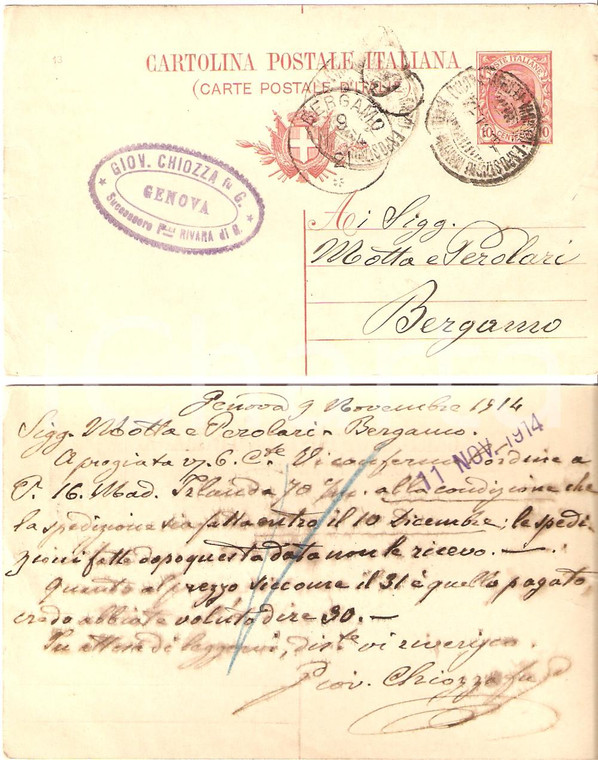 13
CARTOLINA POSTALE ITALIANA
(CARTE POSTALE D'ITALIE)
POSTE ITALIANE
10 CENT 10
BERGAMO
GIOV. CHIOZZA fu G.
GENOVA
Successore F.lli RIVARA di G.
Ai Sigg.
Motta e Perolari
Bergamo
Genova 9 Novembre 1914
Sigg. Motta e Perolari - Bergamo.
11 NOV. 1914
A pregiata vs. 6. Cte. Vi confermo ordine a
P. 16. Mad. Irlanda 78 alla condizione che
la spedizione sia fatta entro il 10 Dicembre; le spedi-
zioni fatte dopo questa data non le ricevo. —
Quanto al prezzo siccome il 31 è quello pagato,
credo abbiate voluto dire 30. —
In attesa di leggervi, diste vi riverisco.
Giov. Chiozza fu G